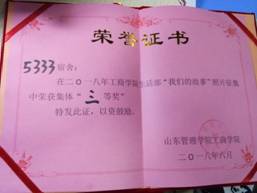 荣誉证书
5333宿舍：
在二〇一八年工商学院生活部“我们的故事”照片征集
中荣获集体“三等奖”
特发此证，以资鼓励。
山东管理学院工商学院
二〇一八年六月